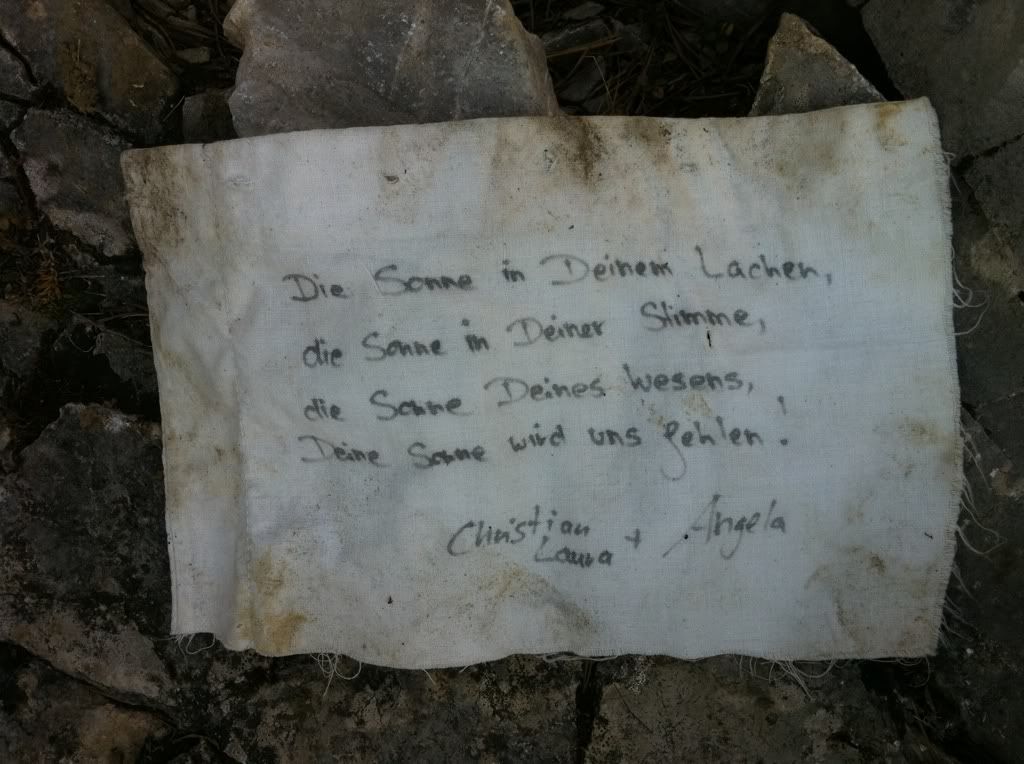 Die Sonne in Deinem Lachen,
die Sonne in Deiner Stimme,
die Sonne Deines Wesens,
Deine Sonne wird uns fehlen!
Christian + Angela
Laura